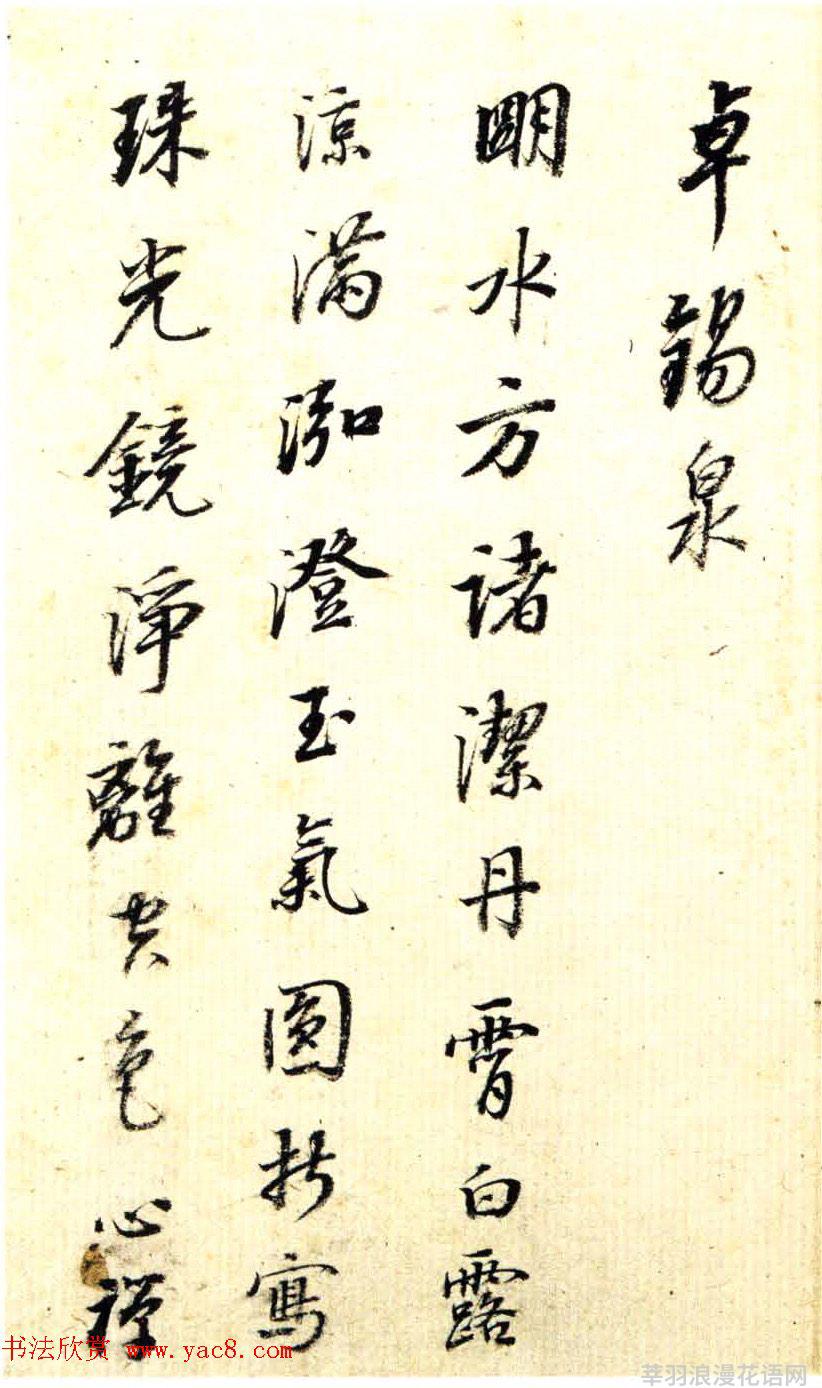 卓錫泉
朙水方諸潔丹霄白露
涼滿泓澄玉氣圓折寫
珠光鏡淨離空色心禪
书法欣赏 www.yac8.com
莘羽浪漫花语网